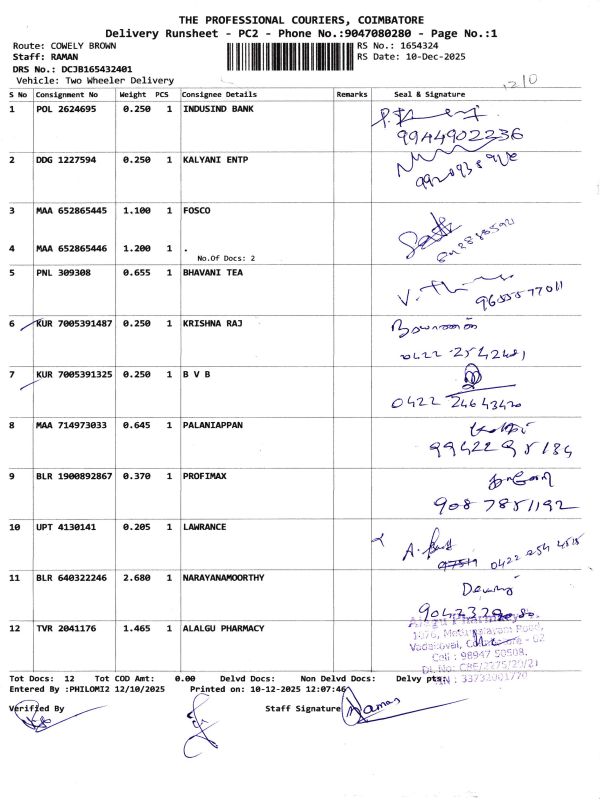 THE PROFESSIONAL COURIERS, COIMBATORE
Delivery Runsheet - PC2 - Phone No.:9047080280 - Page No.:1
Route: COWELY BROWN RS No.: 1654324
Staff: RAMAN RS Date: 10-Dec-2025
DRS No.: DCJB165432401
Vehicle: Two Wheeler Delivery 12/0
S No Consignment No Weight PCS Consignee Details Remarks Seal & Signature
1 POL 2624695 0.250 1 INDUSIND BANK
9944902236
2 DDG 1227594 0.250 1 KALYANI ENTP
3 MAA 652865445 1.100 1 FOSCO
4 MAA 652865446 1.200 1 .
No.Of Docs: 2
5 PNL 309308 0.655 1 BHAVANI TEA
9655577011
6 KUR 7005391487 0.250 1 KRISHNA RAJ
0422 2542481
7 KUR 7005391325 0.250 1 B V B
0422 24643420
8 MAA 714973033 0.645 1 PALANIAPPAN
99422 95184
9 BLR 1900892867 0.370 1 PROFIMAX
908 7851192
10 UPT 4130141 0.205 1 LAWRANCE
0422 254 4515
11 BLR 640322246 2.680 1 NARAYANAMOORTHY
12 TVR 2041176 1.465 1 ALALGU PHARMACY
Alagu Pharmacy
Vadavalli, Coimbatore - 02
Cell : 98947 50508.
Tot Docs: 12 Tot COD Amt: 0.00 Delvd Docs: Non Delvd Docs: Delvy ptsn:
Entered By :PHILOMI2 12/10/2025 Printed on: 10-12-2025 12:07:46
Verified By Staff Signature Raman